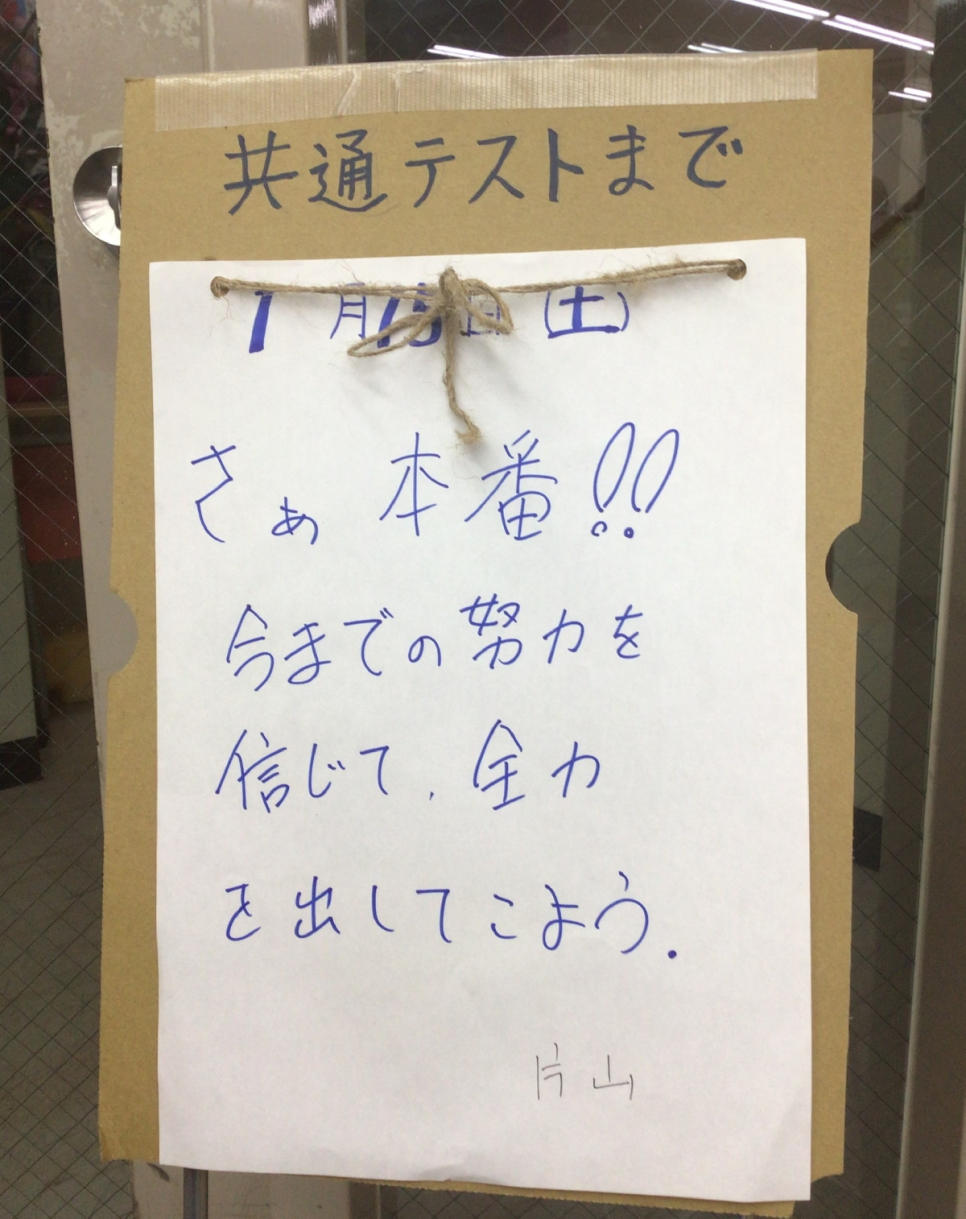 共通テストまで
1月15日(土)
さぁ 本番!!
今までの努力を
信じて、全力
を出してこよう.
片山